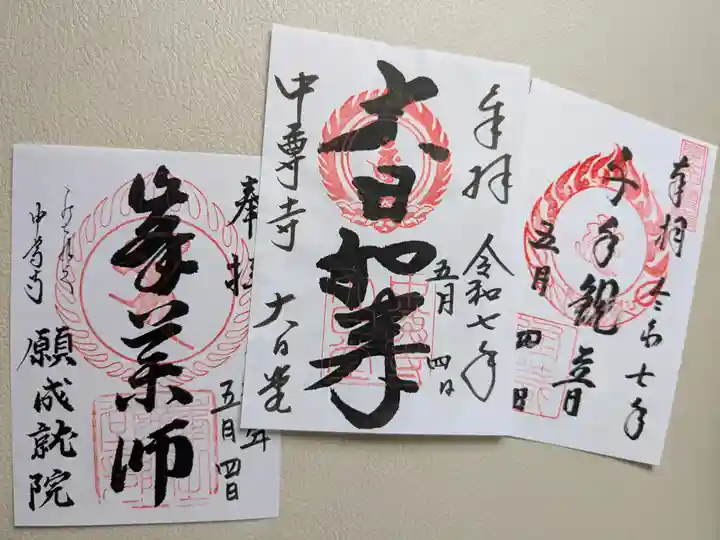 奉拝
峯薬師
五月四日
中尊寺
願成就院
奉拝
令和七年
五月
四日
大日如来
中尊寺 大日堂
奉拝
令和七年
千手観音
五月
四日